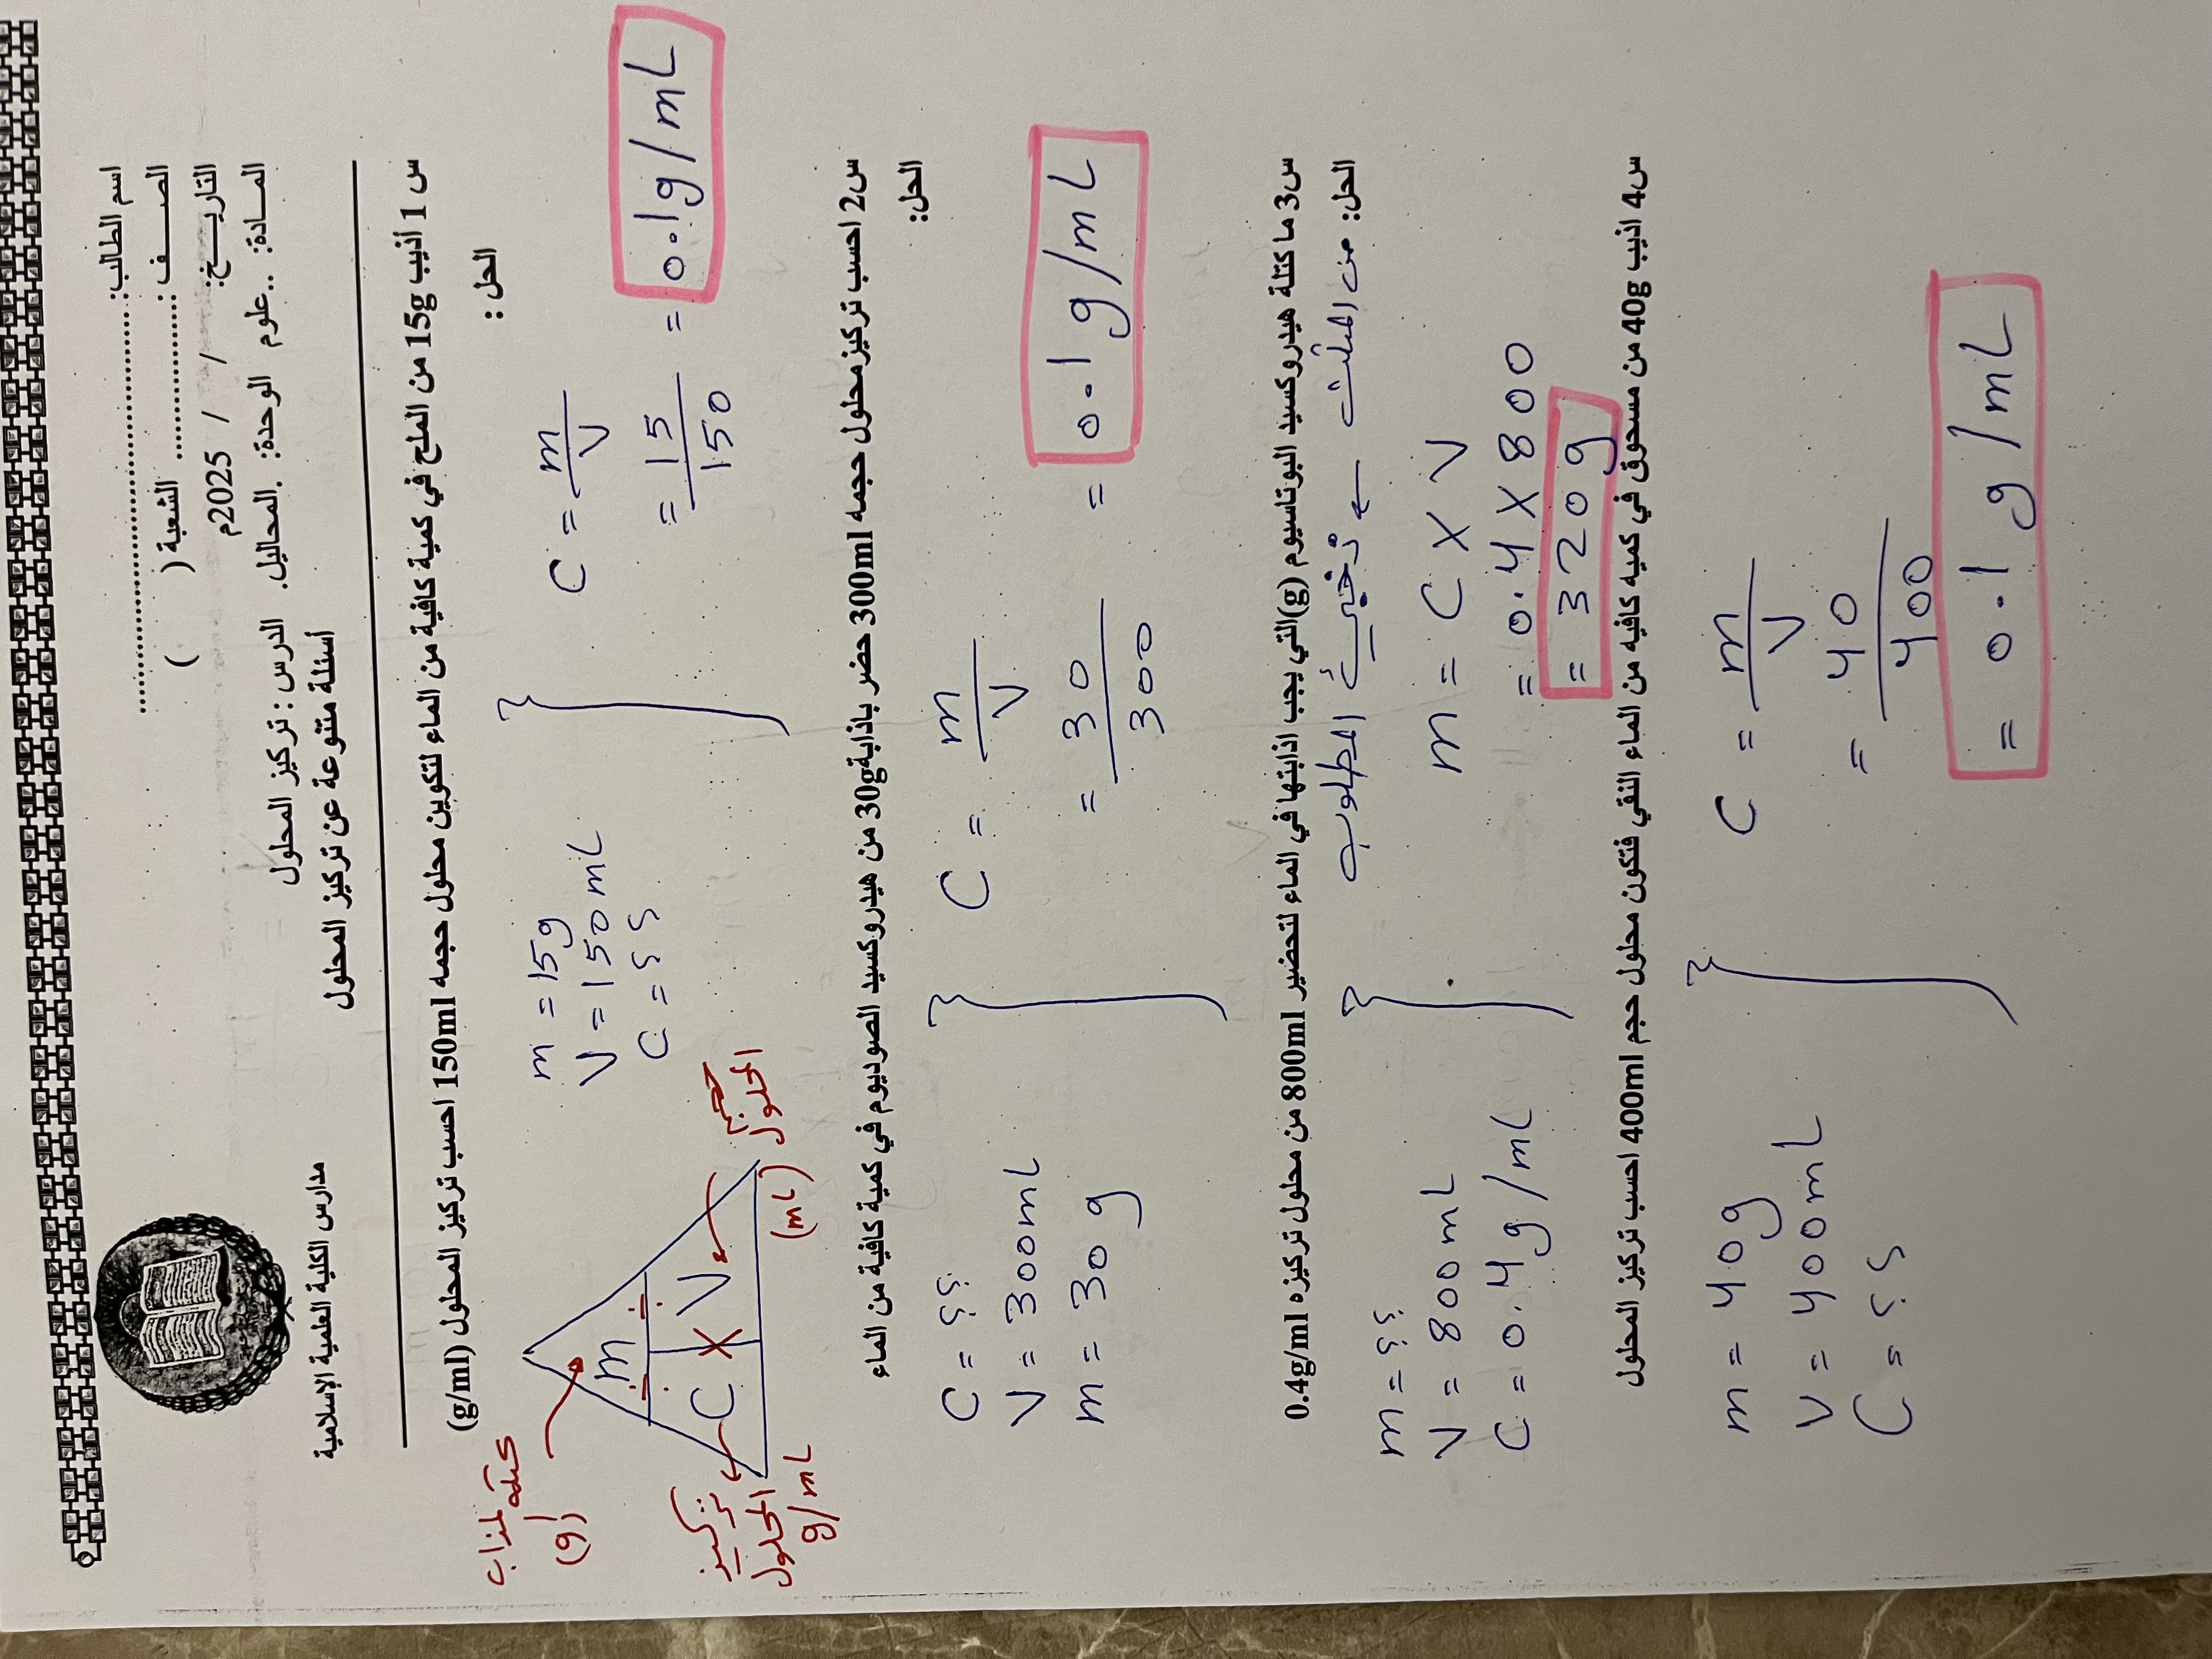 اسم الطالب: ......................................................
الصــــف : .................... الشعبة ( )
التاريــخ: / / 2025م
المــادة: ..علوم الوحدة: .المحاليل. الدرس : تركيز المحلول
مدارس الكلية العلمية الإسلامية
أسئلة متنوعة عن تركيز المحلول
س 1 أذيب 15g من الملح في كمية كافية من الماء لتكوين محلول حجمه 150ml احسب تركيز المحلول (g/ml)
الحل :
كتلة المذاب
(g)
m
÷ ÷
C X V
تركيز
المحلول
g/mL
حجم
المحلول
(mL)
m = 15g
V = 150 mL
C = ؟؟
C = m/V
= 15/150 = 0.1g/mL
س2 احسب تركيز محلول حجمه 300ml حضر باذابة30g من هيدروكسيد الصوديوم في كمية كافية من الماء
الحل:
C = ؟؟
V = 300mL
m = 30 g
C = m/V
= 30/300 = 0.1 g/mL
س3 ما كتلة هيدروكسيد البوتاسيوم (g)التي يجب اذابتها في الماء لتحضير 800ml من محلول تركيزه 0.4g/ml
الحل: من المثلث ← نخبئ المطلوب
m = ؟؟
V = 800 mL
C = 0.4g/mL
m = C X V
= 0.4 X 800
= 320g
س4 اذيب 40g من مسحوق في كميه كافيه من الماء النقي فتكون محلول حجم 400ml احسب تركيز المحلول
m = 40g
V = 400mL
C = ؟؟
C = m/V
= 40/400
= 0.1 g/mL